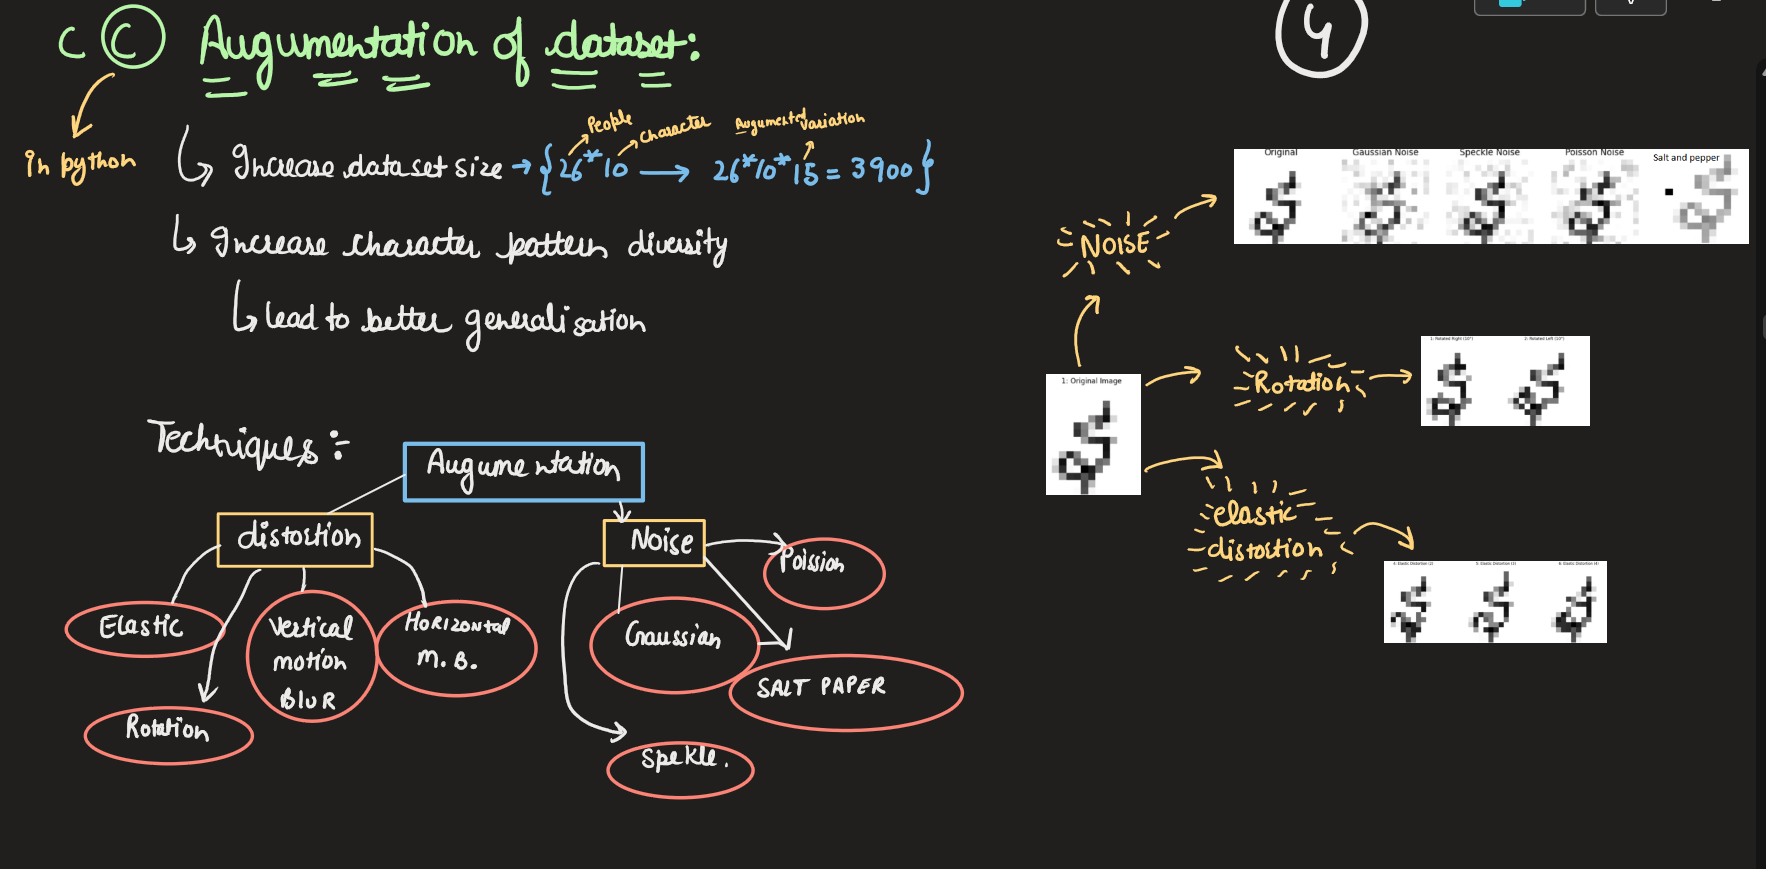 C C Augumentation of dataset:
4
in python
People Character Augmented Variation
Increase data set size → {26*10 → 26*10*15 = 3900}
Increase character pattern diversity
lead to better generalisation
Techniques :-
Augumentation
distortion
Noise
Elastic
Vertical motion BluR
HORIZontal M. B.
Rotation
Poission
Gaussian
SALT PAPER
Spekle.
NOISE
Original Gaussian Noise Speckle Noise Poisson Noise Salt and pepper
1: Original Image
Rotation
1: Rotated Right (10°) 2: Rotated Left (10°)
elastic
distortion
4: Elastic Distortion (2) 5: Elastic Distortion (3) 6: Elastic Distortion (4)